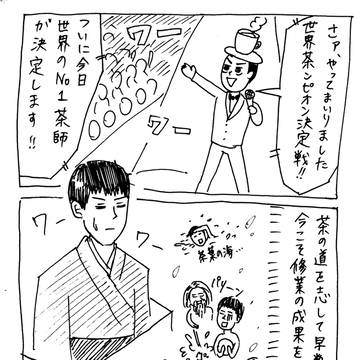 さァ、やってまいりました
世界茶ンピオン決定戦!!
ワー
ワー
ついに今日
世界のNo.1茶師
が決定します!!
茶の道を志して早
今こそ修業の成果を
茶葉の海…
パリーン
ワー
ワー